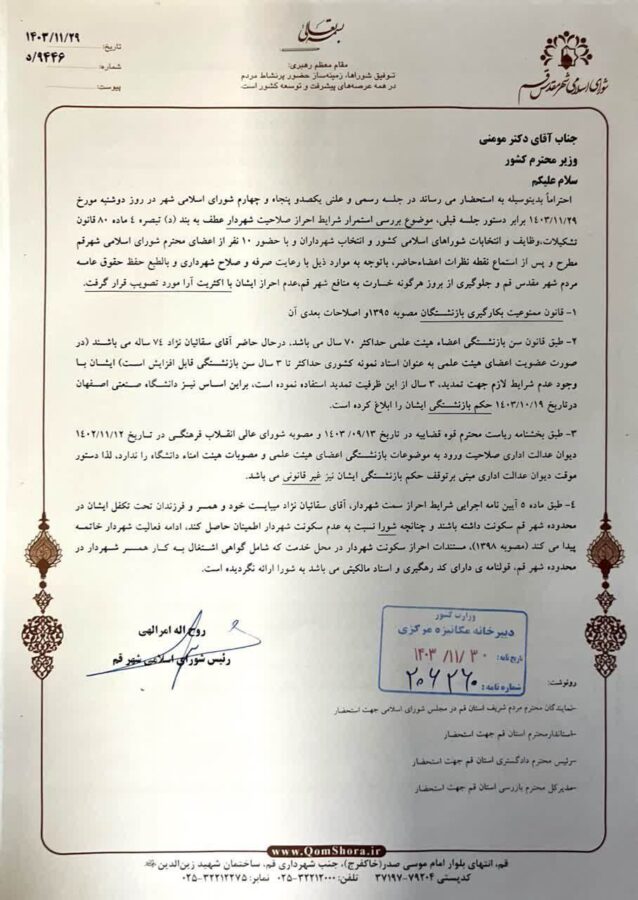 بسمه تعالی
شورای اسلامی شهر مقدس قم
مقام معظم رهبری:
توفیق شوراها، زمینه‌ساز حضور پرنشاط مردم
در همه عرصه‌های پیشرفت و توسعه کشور است.
تاریخ: ۱۴۰۳/۱۱/۲۹
شماره: ۹۴۴۶/د
پیوست:
جناب آقای دکتر مومنی
وزیر محترم کشور
سلام علیکم
احتراماً بدینوسیله به استحضار می رساند در جلسه رسمی و علنی یکصدو پنجاه و چهارم شورای اسلامی شهر در روز دوشنبه مورخ
۱۴۰۳/۱۱/۲۹ برابر دستور جلسه قبلی، موضوع بررسی استمرار شرایط احراز صلاحیت شهردار عطف به بند (د) تبصره ۴ ماده ۸۰ قانون
تشکیلات،وظایف و انتخابات شوراهای اسلامی کشور و انتخاب شهرداران و با حضور ۱۰ نفر از اعضای محترم شورای اسلامی شهرقم
مطرح و پس از استماع نقطه نظرات اعضاءحاضر، باتوجه به موارد ذیل با رعایت صرفه و صلاح شهرداری و بالطبع حفظ حقوق عامه
مردم شهر مقدس قم و جلوگیری از بروز هرگونه خسارت به منافع شهر قم،عدم احراز ایشان با اکثریت آرا مورد تصویب قرار گرفت.
۱- قانون ممنوعیت بکارگیری بازنشستگان مصوبه ۱۳۹۵و اصلاحات بعدی آن
۲- طبق قانون سن بازنشستگی اعضاء هیئت علمی حداکثر ۷۰ سال می باشد. درحال حاضر آقای سقائیان نژاد ۷۴ ساله می باشند (در
صورت عضویت اعضای هیئت علمی به عنوان استاد نمونه کشوری حداکثر تا ۳ سال سن بازنشستگی قابل افزایش است) ایشان با
وجود عدم شرایط لازم جهت تمدید، ۳ سال از این ظرفیت تمدید استفاده نموده است، براین اساس نیز دانشگاه صنعتی اصفهان
درتاریخ ۱۴۰۳/۱۰/۱۹ حکم بازنشستگی ایشان را ابلاغ کرده است.
۳- طبق بخشنامه ریاست محترم قوه قضاییه در تاریخ ۱۴۰۳/۰۹/۱۳ و مصوبه شورای عالی انقلاب فرهنگی در تاریخ ۱۴۰۲/۱۱/۱۲
دیوان عدالت اداری صلاحیت ورود به موضوعات بازنشستگی اعضای هیئت علمی و مصوبات هیئت امناء دانشگاه را ندارد، لذا دستور
موقت دیوان عدالت اداری مبنی برتوقف حکم بازنشستگی ایشان نیز غیر قانونی می باشد.
۴- طبق ماده ۵ آیین نامه اجرایی شرایط احراز سمت شهردار، آقای سقائیان نژاد میبایست خود و همسر و فرزندان تحت تکفل ایشان در
محدوده شهر قم سکونت داشته باشند و چنانچه شورا نسبت به عدم سکونت شهردار اطمینان حاصل کند، ادامه فعالیت شهردار خاتمه
پیدا می کند (مصوبه ۱۳۹۸)، مستندات احراز سکونت شهردار در محل خدمت که شامل گواهی اشتغال به کار همسر شهردار در
محدوده شهر قم، قولنامه ی دارای کد رهگیری و اسناد مالکیتی می باشد به شورا ارائه نگردیده است.
روح اله امرالهی
رئیس شورای اسلامی شهر قم
وزارت کشور
دبیرخانه مکانیزه مرکزی
تاریخ نامه: ۱۴۰۳/۱۱/۳۰
شماره نامه: ۲۰۶۲۶۰
رونوشت:
-نمایندگان محترم مردم شریف استان قم در مجلس شورای اسلامی جهت استحضار
-استاندارمحترم استان قم جهت استحضار
-رئیس محترم دادگستری استان قم جهت استحضار
-مدیرکل محترم بازرسی استان قم جهت استحضار
www.QomShora.ir
قم، انتهای بلوار امام موسی صدر(خاکفرج)، جنب شهرداری قم، ساختمان شهید زین‌الدین
کدپستی ۷۹۲۰۴-۳۷۱۹۷ تلفن: ۳۲۲۱۲۰۰۰-۰۲۵ نمابر: ۳۲۲۱۲۲۷۵-۰۲۵